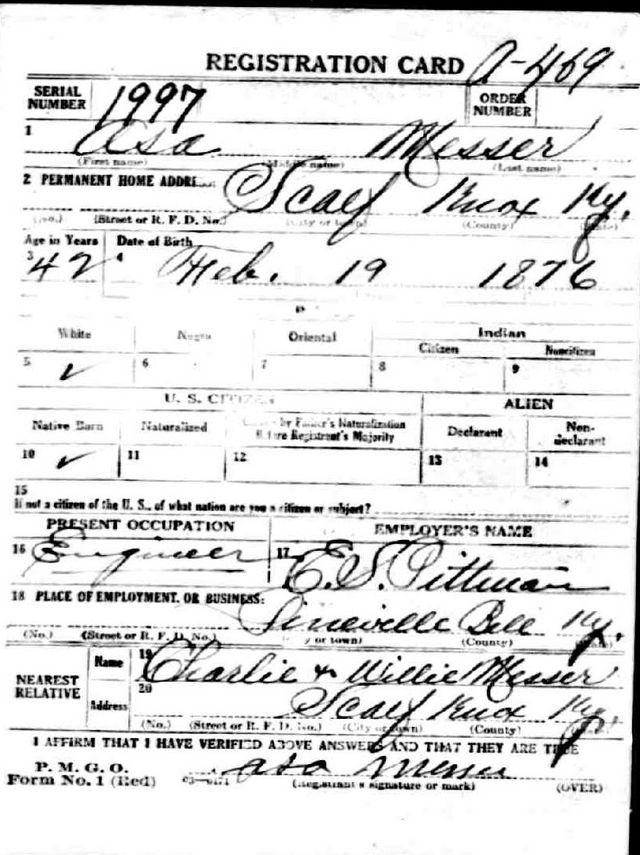 REGISTRATION CARD A-469
SERIAL NUMBER 1997 ORDER NUMBER
1 Asa Messer
(First name) (Middle name) (Last name)
2 PERMANENT HOME ADDRESS: Scalf Knox Ky.
(No.) (Street or R. F. D. No.) (City or town) (County) (State)
Age in Years Date of Birth
3 42 4 Feb. 19 1876
White Negro Oriental Indian
Citizen Noncitizen
5 ✓ 6 7 8 9
U. S. CITIZEN ALIEN
Native Born Naturalized Citizen by Father's Naturalization Before Registrant's Majority Declarant Non-declarant
10 ✓ 11 12 13 14
15
If not a citizen of the U. S., of what nation are you a citizen or subject?
PRESENT OCCUPATION EMPLOYER'S NAME
16 Engineer 17 E. S. Pittman
18 PLACE OF EMPLOYMENT OR BUSINESS:
Pineville Bell Ky.
(No.) (Street or R. F. D. No.) (City or town) (County) (State)
NEAREST RELATIVE Name 19 Charlie & Willie Messer
Address 20 Scalf Knox Ky.
(No.) (Street or R. F. D. No.) (City or town) (County) (State)
I AFFIRM THAT I HAVE VERIFIED ABOVE ANSWERS AND THAT THEY ARE TRUE
P. M. G. O.
Form No. 1 (Red) Asa Messer
(Registrant's signature or mark) (OVER)